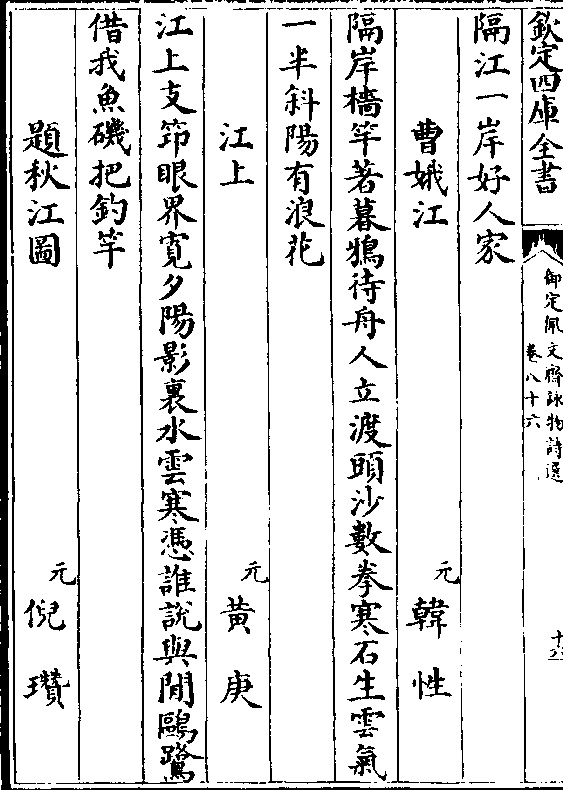 欽定四庫全書
御定佩文齋詠物詩選
卷八十六
十六
隔江一岸好人家
曹娥江
元
韓性
隔岸檣竿著暮鴉待舟人立渡頭沙數拳寒石生雲氣
一半斜陽有浪花
江上
元
黃庚
江上支笻眼界寬夕陽影裏水雲寒憑誰說與閒鷗鷺
借我魚磯把釣竿
題秋江圖
元
倪瓚